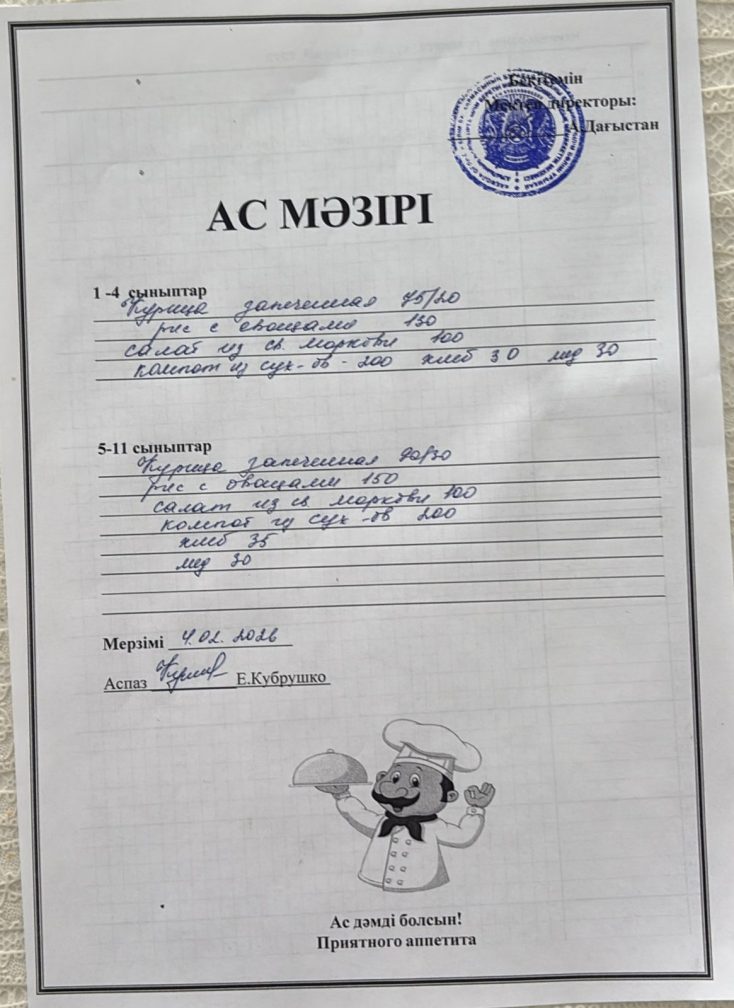 Бекітемін
Мектеп директоры:
А.Дағыстан
АС МӘЗІРІ
1 -4 сыныптар
Курица запеченная 75/20
рис с овощами 130
салат из св моркови 100
компот из сух-ов - 200 хлеб 30 мед 30
5-11 сыныптар
Курица запеченная 90/30
рис с овощами 150
салат из св моркови 100
компот из сух-ов 200
хлеб 35
мед 30
Мерзімі 4.02.2026
Аспаз Е.Кубрушко
Ас дәмді болсын!
Приятного аппетита